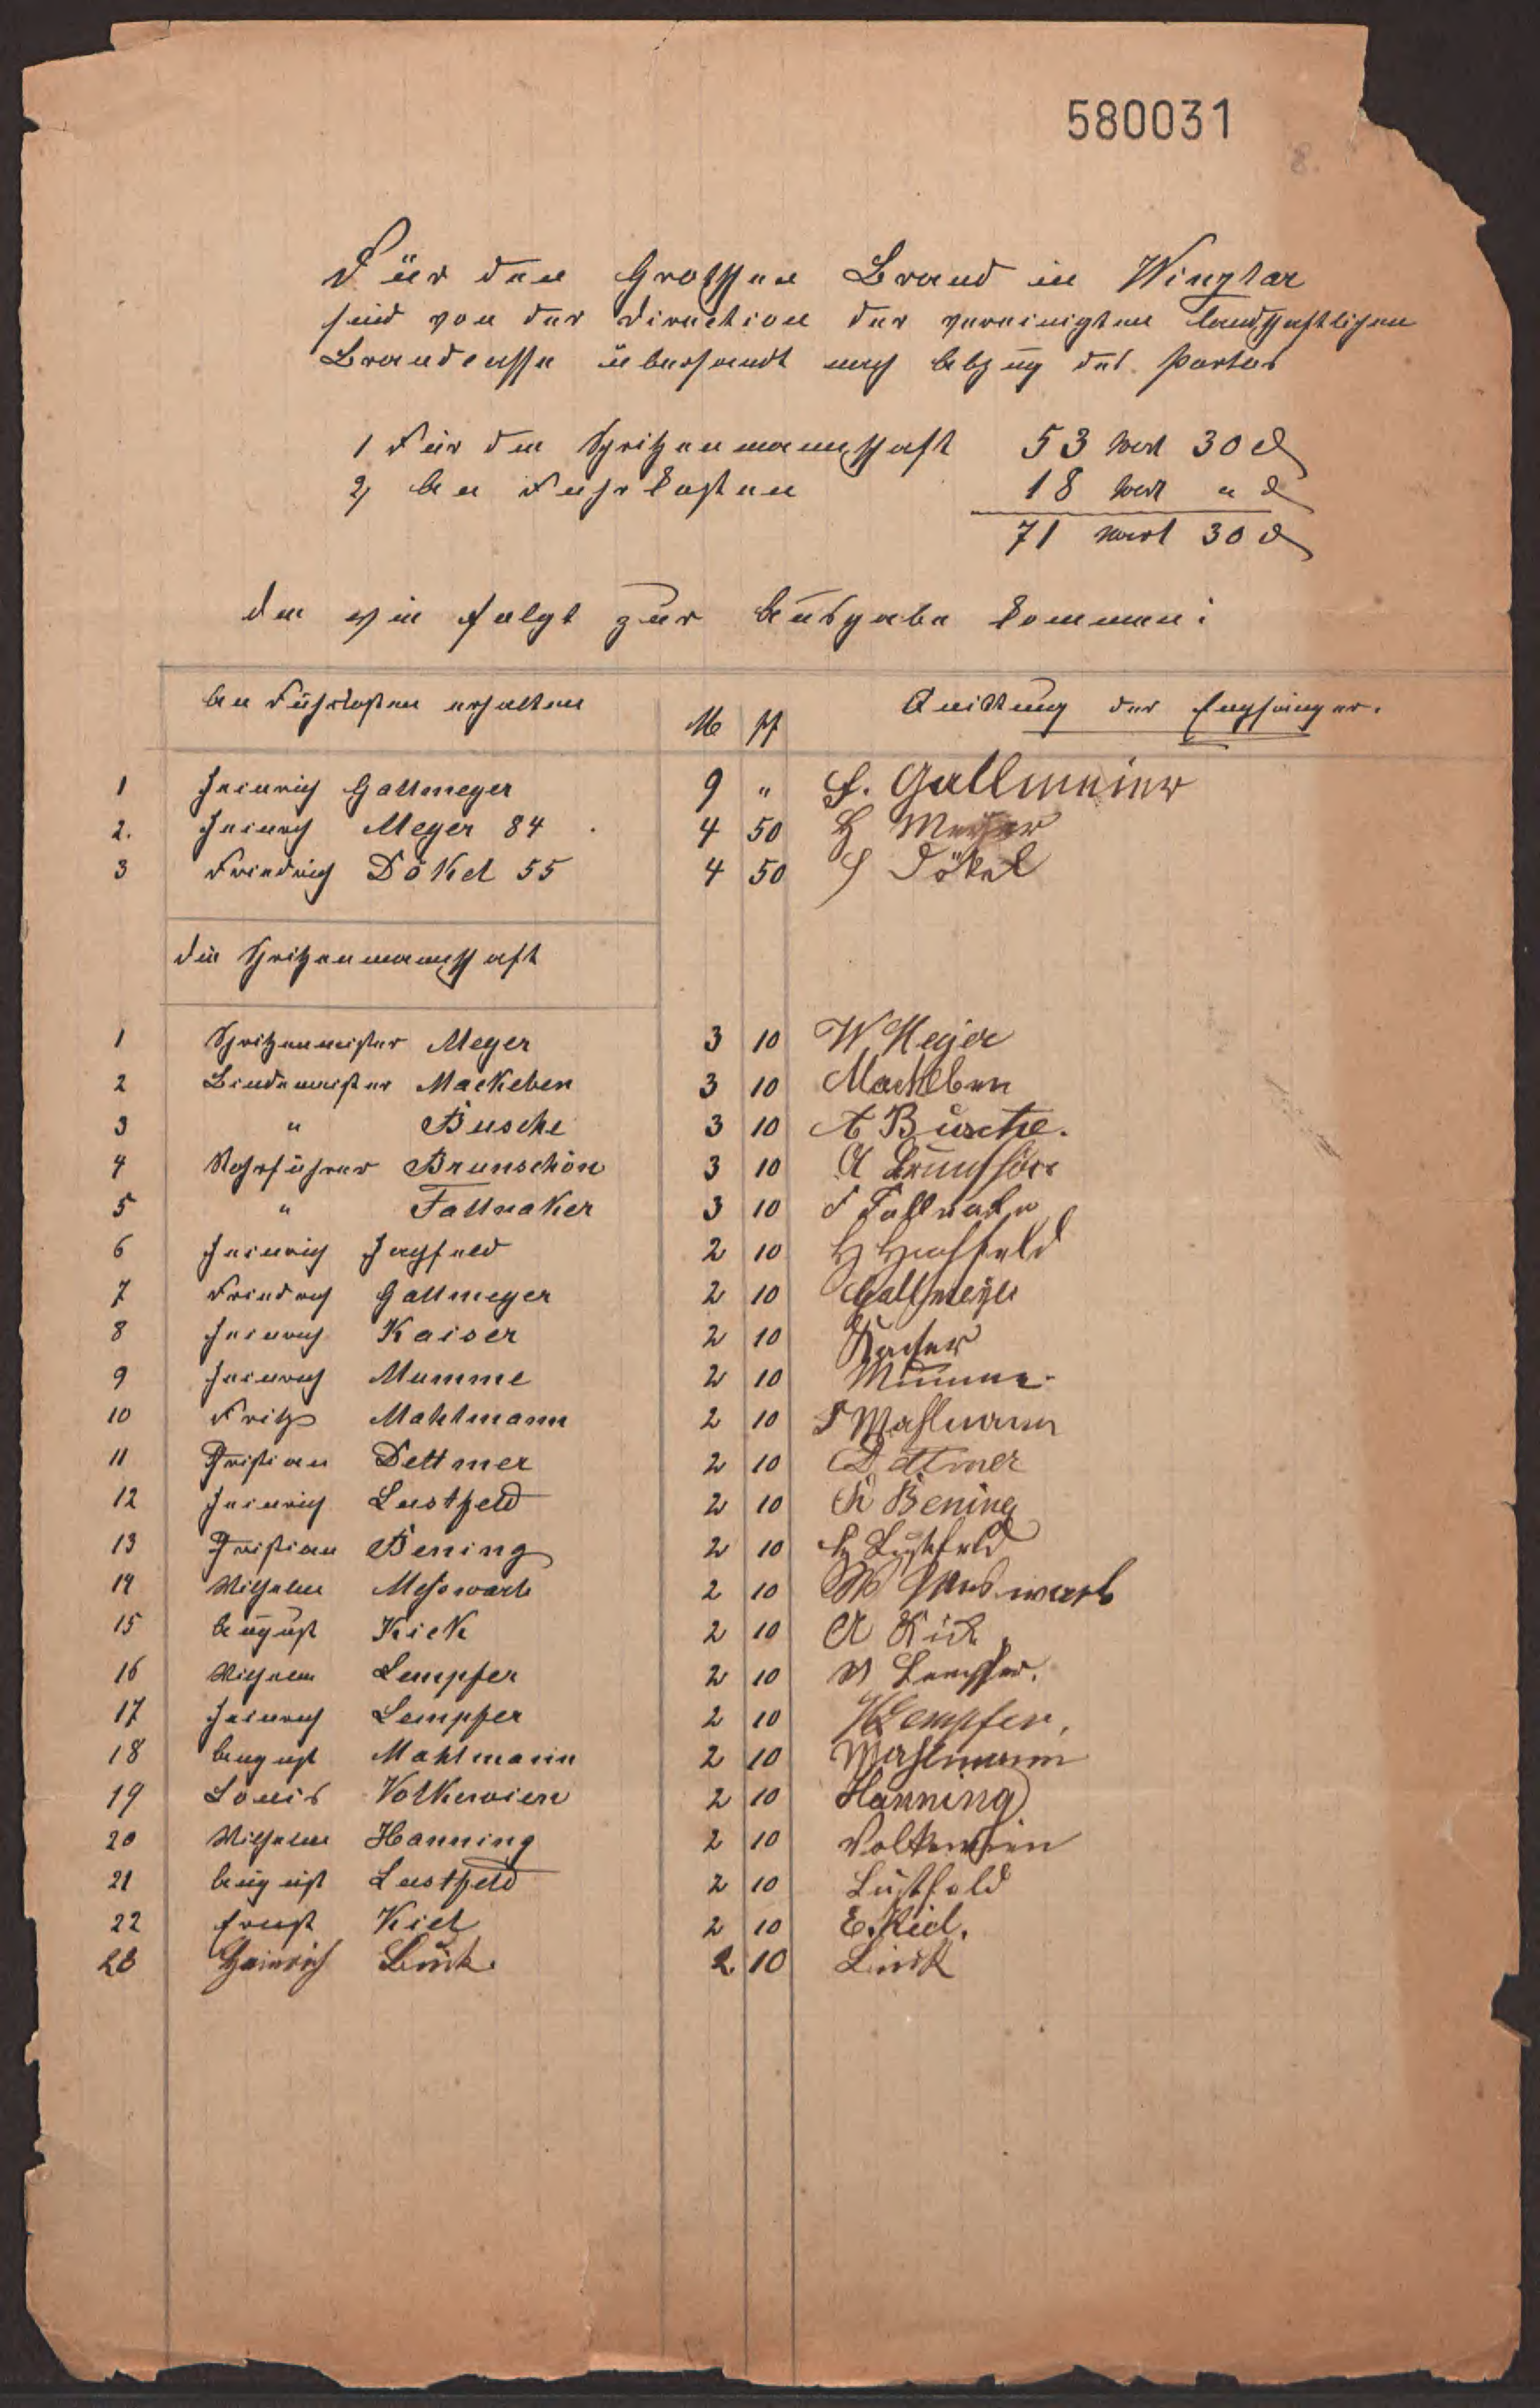 580031
8.
Für den Grossen Brand in Winzlar
sind von der Direction der vereinigten landschaftlichen
Brandcasse übersandt nach Abzug des Portos
1 Für den Spritzenmannschaft 53 Mark 30 ₰
2, An Fuhrkosten 18 Mark " ₰
71 Mark 30 ₰
den wie folgt zur Ausgabe kommen:
An Fuhrkosten erhalten M Pf Quittung der Empfänger.
1 Heinrich Gallmeyer 9 " H. Gallmeier
2. Heinrich Meyer 84 4 50 H Meyer
3 Friedrich Dökel 55 4 50 F Dökel
die Spritzenmannschaft
1 Spritzenmeister Meyer 3 10 W Meyer
2 Bindemeister Mackeben 3 10 Mackeben
3 " Busche 3 10 A Busche.
4 Rohrführer Brunschön 3 10 A Brunschön
5 " Tallnaker 3 10 F Tallnaker
6 Heinrich Hachfeld 2 10 H Hachfeld
7 Friedrich Gallmeyer 2 10 Gallmeyer
8 Heinrich Kaiser 2 10 Kaiser
9 Heinrich Mumme 2 10 Mumme
10 Fritz Mahlmann 2 10 F Mahlmann
11 Kristian Dettmer 2 10 Dettmer
12 Heinrich Lustfeld 2 10 Ch Bening
13 Kristian Bening 2 10 H Lustfeld
14 Wilhelm Messwarb 2 10 W Messwarb
15 August Kick 2 10 A Kick
16 Wilhelm Lempfer 2 10 W Lempfer.
17 Heinrich Lempfer 2 10 H Lempfer,
18 August Mahlmann 2 10 Mahlmann
19 Louis Volkewien 2 10 Hanning
20 Wilhelm Hanning 2 10 Volkewien
21 August Lustfeld 2 10 Lustfeld
22 Ernst Kiel 2 10 E. Kiel.
23 Heinrich 2 10